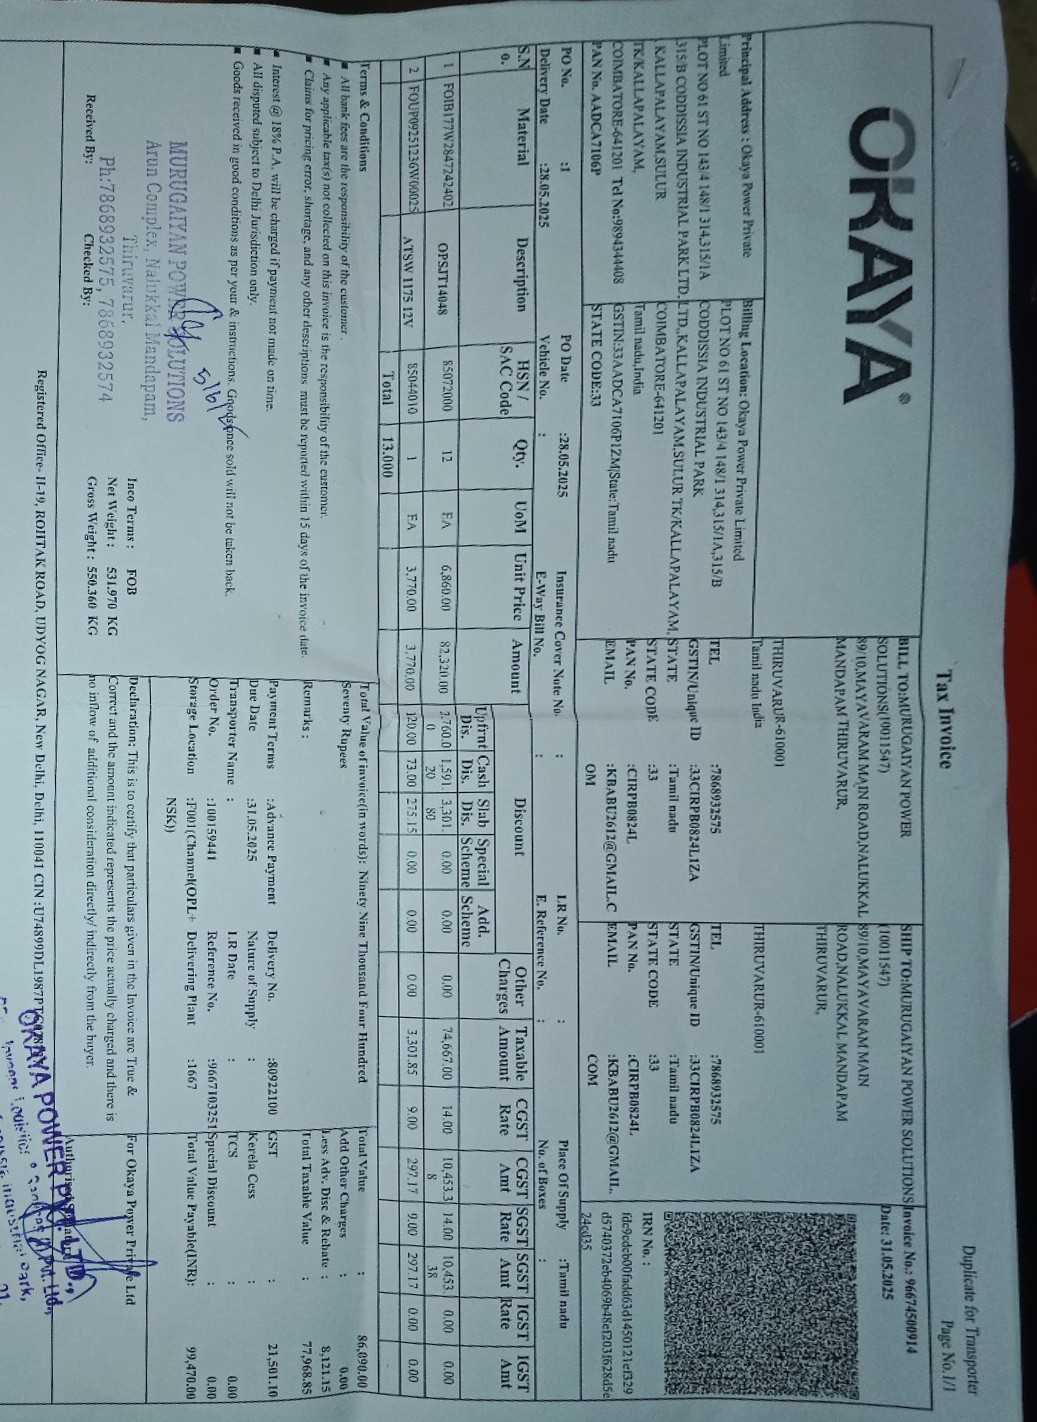 Duplicate for Transporter
Page No.1/1
Tax Invoice
OKAYA ®
Principal Address : Okaya Power Private
Limited
PLOT NO 61 ST NO 143/4 148/1 314,315/1A
315/B CODDISSIA INDUSTRIAL PARK LTD,
KALLAPALAYAM,SULUR
TK/KALLAPALAYAM,
COIMBATORE-641201 Tel No:9894344408
PAN No. AADCA7106P
Billing Location: Okaya Power Private Limited
PLOT NO 61 ST NO 143/4 148/1 314,315/1A,315/B
CODDISSIA INDUSTRIAL PARK
LTD.,KALLAPALAYAM,SULUR TK/KALLAPALAYAM,
COIMBATORE-641201
Tamil nadu,India
GSTIN:33AADCA7106P1ZM|State:Tamil nadu
STATE CODE:33
BILL TO:MURUGAIYAN POWER
SOLUTIONS(10011547)
89/10,MAYAVARAM MAIN ROAD,NALUKKAL
MANDAPAM THIRUVARUR,
THIRUVARUR-610001
Tamil nadu India
TEL :7868932575
GSTIN/Unique ID :33CIRPB0824L1ZA
STATE :Tamil nadu
STATE CODE :33
PAN No. :CIRPB0824L
EMAIL :KBABU2612@GMAIL.C
OM
SHIP TO:MURUGAIYAN POWER SOLUTIONS
(10011547)
89/10,MAYAVARAM MAIN
ROAD,NALUKKAL MANDAPAM
THIRUVARUR,
THIRUVARUR-610001
TEL :7868932575
GSTIN/Unique ID :33CIRPB0824L1ZA
STATE :Tamil nadu
STATE CODE :33
PAN No. :CIRPB0824L
EMAIL :KBABU2612@GMAIL.
COM
Invoice No.: 96674500914
Date: 31.05.2025
IRN No. :
24ed35
PO No. :1 PO Date :28.05.2025 Insurance Cover Note No. : LR No. : Place Of Supply :Tamil nadu
Delivery Date :28.05.2025 Vehicle No. : E-Way Bill No. : E. Reference No. : No. of Boxes :
S.No. Material Description HSN / SAC Code Qty. UoM Unit Price Amount Discount Other Charges Taxable Amount CGST Rate CGST Amt SGST Rate SGST Amt IGST Rate IGST Amt
Upfrnt Dis. Cash Dis. Slab Dis. Special Scheme Add. Scheme
1 FOIB177W2847242402 OPSJT14048 85072000 12 EA 6,860.00 82,320.00 2,760.00 1,591.20 3,301.80 0.00 0.00 0.00 74,667.00 14.00 10,453.38 14.00 10,453.38 0.00 0.00
2 FOUP09251236W00025 ATSW 1175 12V 85044010 1 EA 3,770.00 3,770.00 120.00 73.00 275.15 0.00 0.00 0.00 3,301.85 9.00 297.17 9.00 297.17 0.00 0.00
Total 13.000
Terms & Conditions
All bank fees are the responsibility of the customer .
Any applicable tax(s) not collected on this invoice is the responsibility of the customer.
Claims for pricing error, shortage, and any other descriptions must be reported within 15 days of the invoice date.
Interest @ 18% P.A. will be charged if payment nor made on time.
All disputed subject to Delhi Jurisdiction only.
Goods received in good conditions as per your & instructions. Goods once sold will not be taken back.
5/6/
MURUGAIYAN POWER SOLUTIONS
Arun Complex, Nalukkal Mandapam,
Thiruvarur.
Ph:7868932575, 7868932574
Received By: Checked By:
Inco Terms : FOB
Net Weight : 531.970 KG
Gross Weight : 550.360 KG
Total Value of invoice(in words): Ninety Nine Thousand Four Hundred
Seventy Rupees
Remarks :
Payment Terms :Advance Payment Delivery No. :80922100
Due Date :31.05.2025 Nature of Supply :
Transporter Name : LR Date :
Order No. :100159441 Reference No. :9667103251
Storage Location :F001(Channel(OPL+ NSK)) Delivering Plant :1667
Total Value 86,090.00
Add Other Charges : 0.00
Less Adv. Disc & Rebate : 8,121.15
Total Taxable Value : 77,968.85
GST : 21,501.10
Kerela Cess :
TCS : 0.00
Special Discount : 0.00
Total Value Payable(INR): 99,470.00
Declaration: This is to certify that particulars given in the Invoice are True &
Correct and the amount indicated represents the price actually charged and there is
no inflow of additional consideration directly/ indirectly from the buyer.
For Okaya Power Private Ltd
OKAYA POWER PVT. LTD.,
Registered Office- H-19, ROHTAK ROAD, UDYOG NAGAR, New Delhi, Delhi, 110041 CIN :